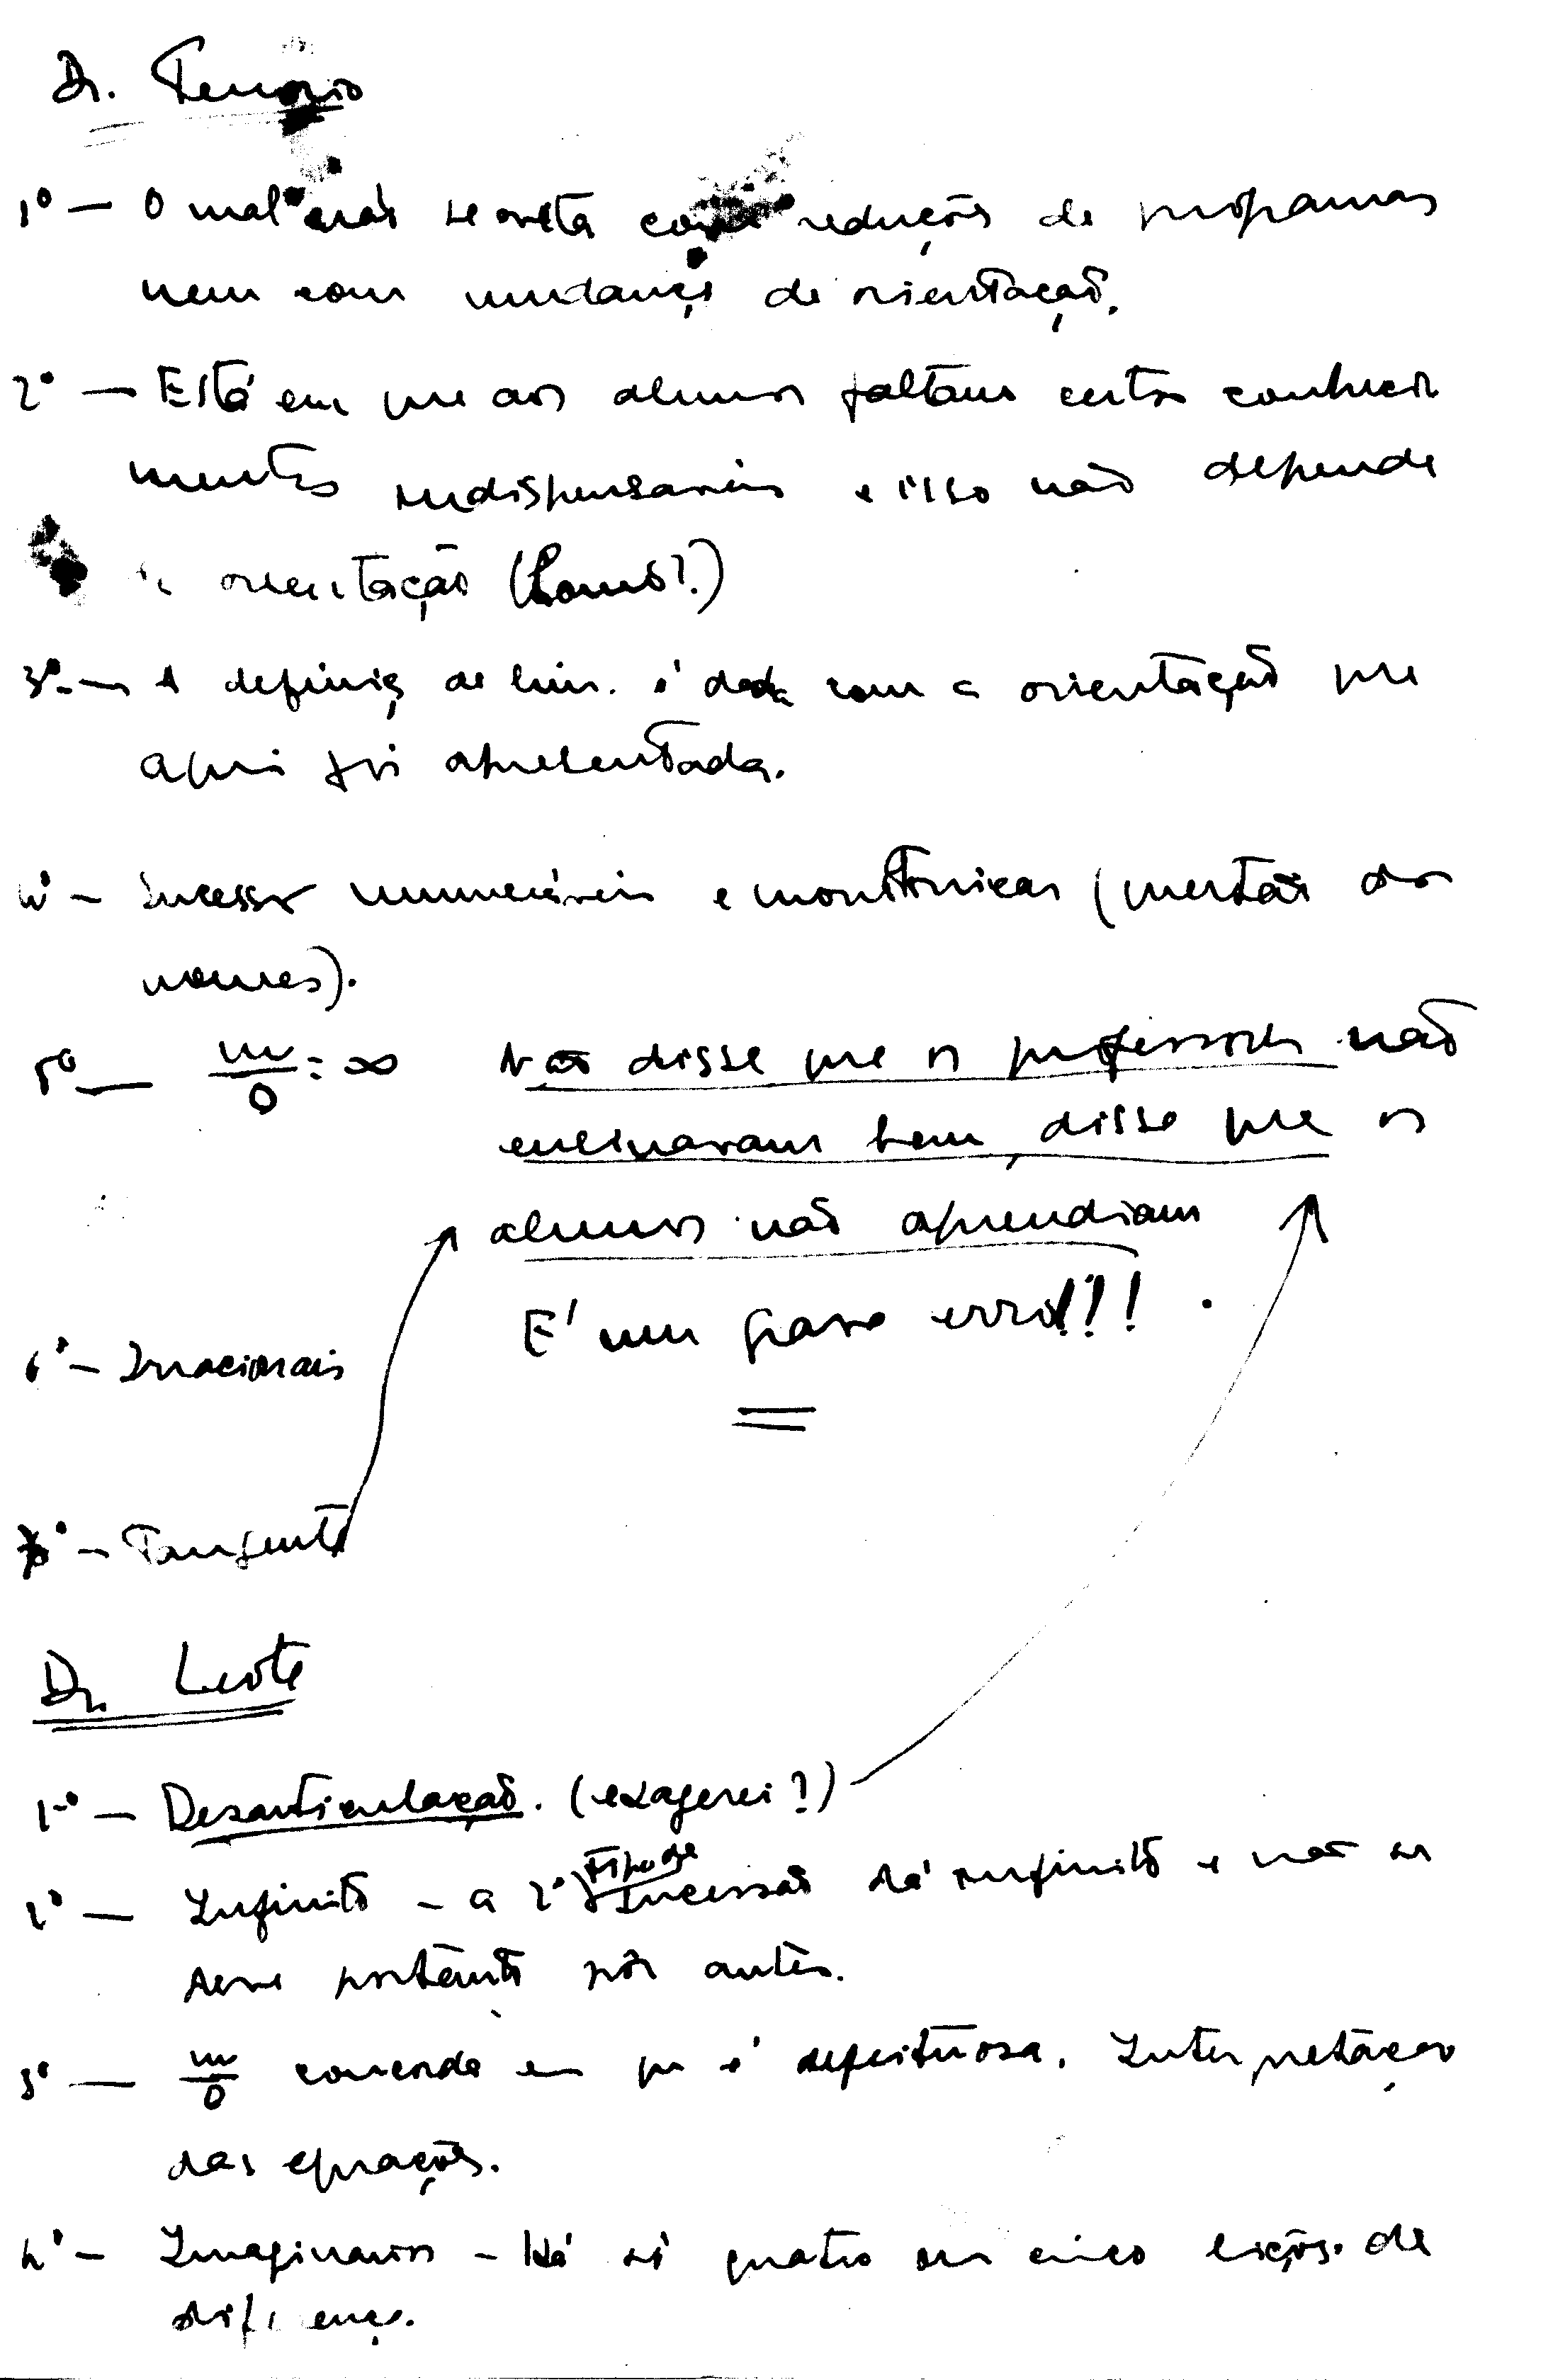 Dr. Tenorio
1º — O mal não se evita com reduções de programas
nem com mudança de orientação.
2º — Está em que aos alunos faltam certos conheci
mentos indispensaveis e isso não depende
orientação (Como?)
3º — A definiç de lim. é dada com a orientação que
aqui foi apresentada.
4º — Sucessões numeráveis e monotónicas (questão dos
nomes).
5º — m/0 = ∞ Não disse que os professores não
ensinavam bem, disse que os
alunos não aprendiam
E' um grave erro!!!
6º — Irracionais
7º — Tangente
Dr. Leote
1º — Desarticulação. (exagerei?)
2º — Infinito — a 2º tipo de sucessão dá infinito e não se
deve portanto pôr antes.
3º — m/0 concorda em que é defeituosa. Interpretação
das equações.
4º — Imaginarios — Há só quatro ou cinco lições de
diferença.